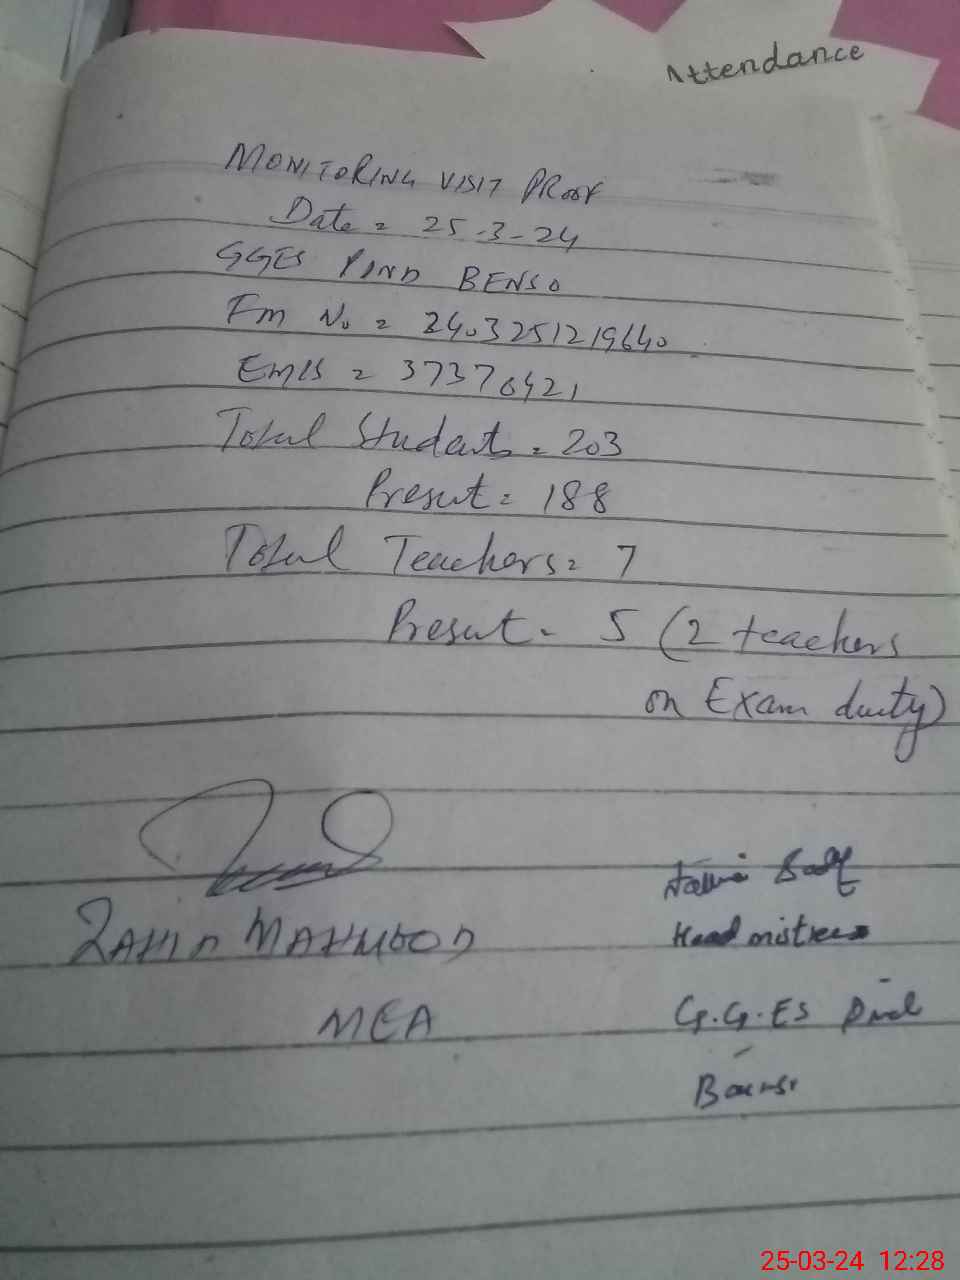 Attendance
MONITORING VISIT PROOF
Date = 25-3-24
GGES PIND BENSO
Fm No = 2403251219640
Emis = 37370421
Total Students = 203
Present = 188
Total Teachers = 7
Present - 5 (2 teachers
on Exam duty)
ZAHID MAHMOOD
MEA
Headmistress
G.G.ES Pind
25-03-24 12:28